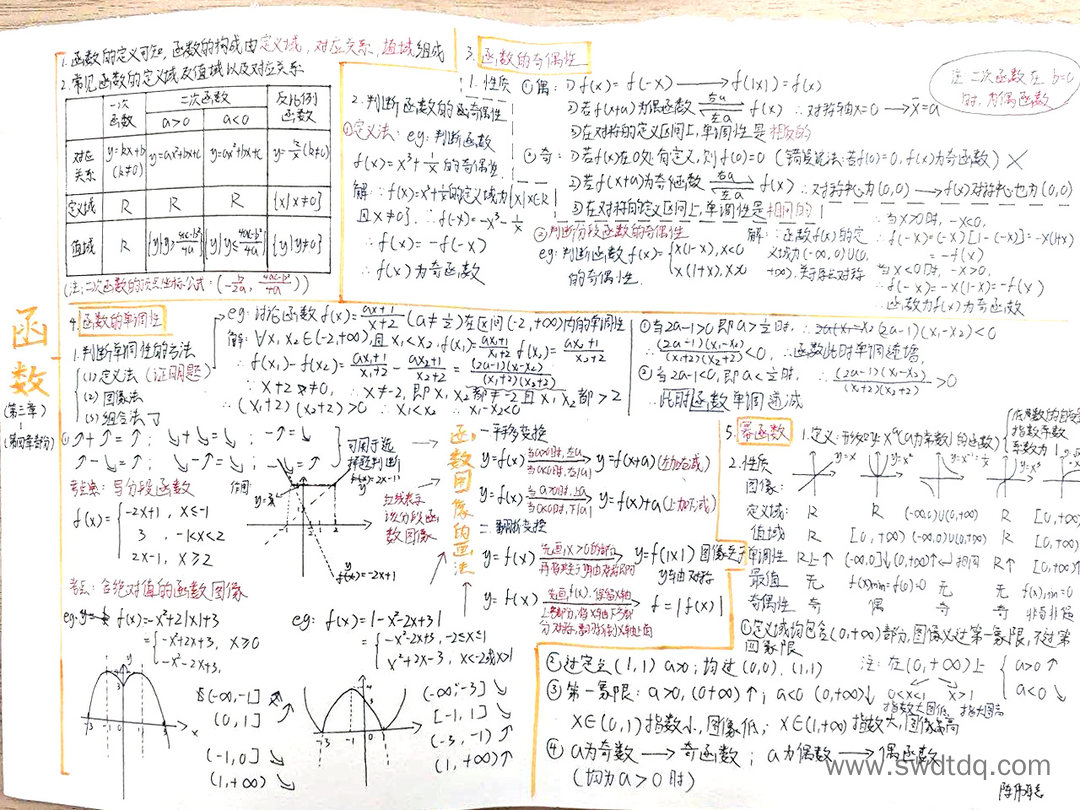 函数
(第三章)
(第四章部分)
1. 函数的定义可知，函数的构成由定义域，对应关系，值域组成
2. 常见函数的定义域及值域以及对应关系
一次函数 二次函数 反比例函数
a>0 a<0
对应关系 y=kx+b (k≠0) y=ax²+bx+c y=ax²+bx+c y=k/x (k≠0)
定义域 R R R {x|x≠0}
值域 R {y|y≥4ac-b²/4a} {y|y≤4ac-b²/4a} {y|y≠0}
(注：二次函数的顶点坐标公式：(-b/2a, 4ac-b²/4a))
3. 函数的奇偶性
1. 性质
①偶：1) f(x)=f(-x) → f(|x|)=f(x)
2) 若f(x+a)为偶函数 右a 左a f(x) ∴对称轴x=0 → x=a
3) 在对称的定义区间上，单调性是相反的
②奇：1) 若f(x)在0处有定义，则f(0)=0 (错误说法：若f(0)=0，f(x)为奇函数) ×
2) 若f(x+a)为奇函数 右a 左a f(x) ∴对称中心为(0,0) → f(x)对称中心也为(0,0)
3) 在对称的定义区间上，单调性是相同的
注：二次函数在b=0时，为偶函数
2. 判断函数的奇偶性
①定义法：eg：判断函数
f(x)=x³+1/x 的奇偶性
解：∵f(x)=x³+1/x的定义域为{x|x∈R
且x≠0}，∴f(-x)=-x³-1/x
∴f(x)=-f(-x)
∴f(x)为奇函数
②判断分段函数的奇偶性
eg：判断函数f(x)={x(1-x), x<0
x(1+x), x>0
的奇偶性.
解：∵函数f(x)的定
义域为(-∞,0)∪(0,
+∞)，关于原点对称
∴当x>0时，-x<0，
∴f(-x)=(-x)[1-(-x)]=-x(1+x)
=-f(x)
当x<0时，-x>0，
∴f(-x)=-x(1-x)=-f(x)
∴函数f(x)为奇函数
4. 函数的单调性
1. 判断单调性的方法
(1) 定义法 (证明题)
(2) 图像法
(3) 组合法
eg：讨论函数f(x)=ax+1/x+2 (a≠1/2)在区间(-2,+∞)内的单调性
解：∀x₁x₂∈(-2,+∞)，且x₁<x₂，f(x₁)=ax₁+1/x₁+2 f(x₂)=ax₂+1/x₂+2
∴f(x₁)-f(x₂)=ax₁+1/x₁+2-ax₂+1/x₂+2=(2a-1)(x₁-x₂)/(x₁+2)(x₂+2)
∵x+2≠0，∴x≠-2，即x₁x₂都≠-2且x₁x₂都>2
∴(x₁+2)(x₂+2)>0 ∵x₁<x₂ ∴x₁-x₂<0
①当2a-1>0即a>1/2时，∴(2a-1)(x₁-x₂)<0
(2a-1)(x₁-x₂)/(x₁+2)(x₂+2)<0，∴函数此时单调递增.
②当2a-1<0，即a<1/2时，∴(2a-1)(x₁-x₂)/(x₁+2)(x₂+2)>0
∴此时函数单调递减
①↗+↗=↗；↘+↘=↘；-↗=↘
↗-↘=↗；↘-↗=↘；-↘=↗
可用于选
择题判断
考点：写分段函数
作图：
f(x)={-2x+1, x≤-1
3, -1<x<2
2x-1, x≥2
y=3
f(x)=2x-1
f(x)=-2x+1
红线表示
该分段函
数图像
考点：含绝对值的函数图像
eg：f(x)=-x²+2|x|+3
={-x²+2x+3, x≥0
-x²-2x+3,
(-∞,-1] ↗
(0,1] ↗
(-1,0] ↘
(1,+∞) ↘
eg：f(x)=|-x²-2x+3|
={-x²-2x+3, -2≤x≤1
x²+2x-3, x<-2或x>1
(-∞,-3] ↘
[-1,1] ↘
(-3,-1) ↗
(1,+∞) ↗
函数图像的画法
一.平移变换
y=f(x) 当a>0时，左a 当a<0时，右|a| y=f(x+a) (左加右减)
y=f(x) 当a>0时，上a 当a<0时，下|a| y=f(x)+a (上加下减)
二.翻折变换
y=f(x) 先画x>0的部分 y=f(|x|) 图像关于
y轴由对称
y=f(x) 先画f(x)，保留x轴 f=|f(x)|
5. 幂函数
1. 定义：形如y=xᵃ (a为常数) 的函数
指数系数
系数为1
2. 性质
图像：y=x y=x² y=x⁻¹=1/x y=x³
定义域：R R (-∞,0)∪(0,+∞) R [0,+∞)
值域 R [0,+∞) (-∞,0)∪(0,+∞) R [0,+∞)
单调性 R上↑ (-∞,0]↓(0,+∞)↑ 相同 R↑ [0,+∞)↑
最值 无 f(x)min=f(0)=0 无 无 f(x)min=0
奇偶性 奇 偶 奇 奇 非奇非偶
①定义域均包含(0,+∞)部分，图像必过第一象限，不过第
四象限
②过定点(1,1) a>0：均过(0,0)，(1,1)
注：在(0,+∞)上{a>0↑
a<0↓
③第一象限：a>0，(0,+∞)↑；a<0 (0,+∞)↓
0<x<1 x>1
指数大图低 指大图高
x∈(0,1)指数小，图像低；x∈(1,+∞)指数大，图像高
④a为奇数→奇函数；a为偶数→偶函数
(均为a>0时)
www.swdtdq.com